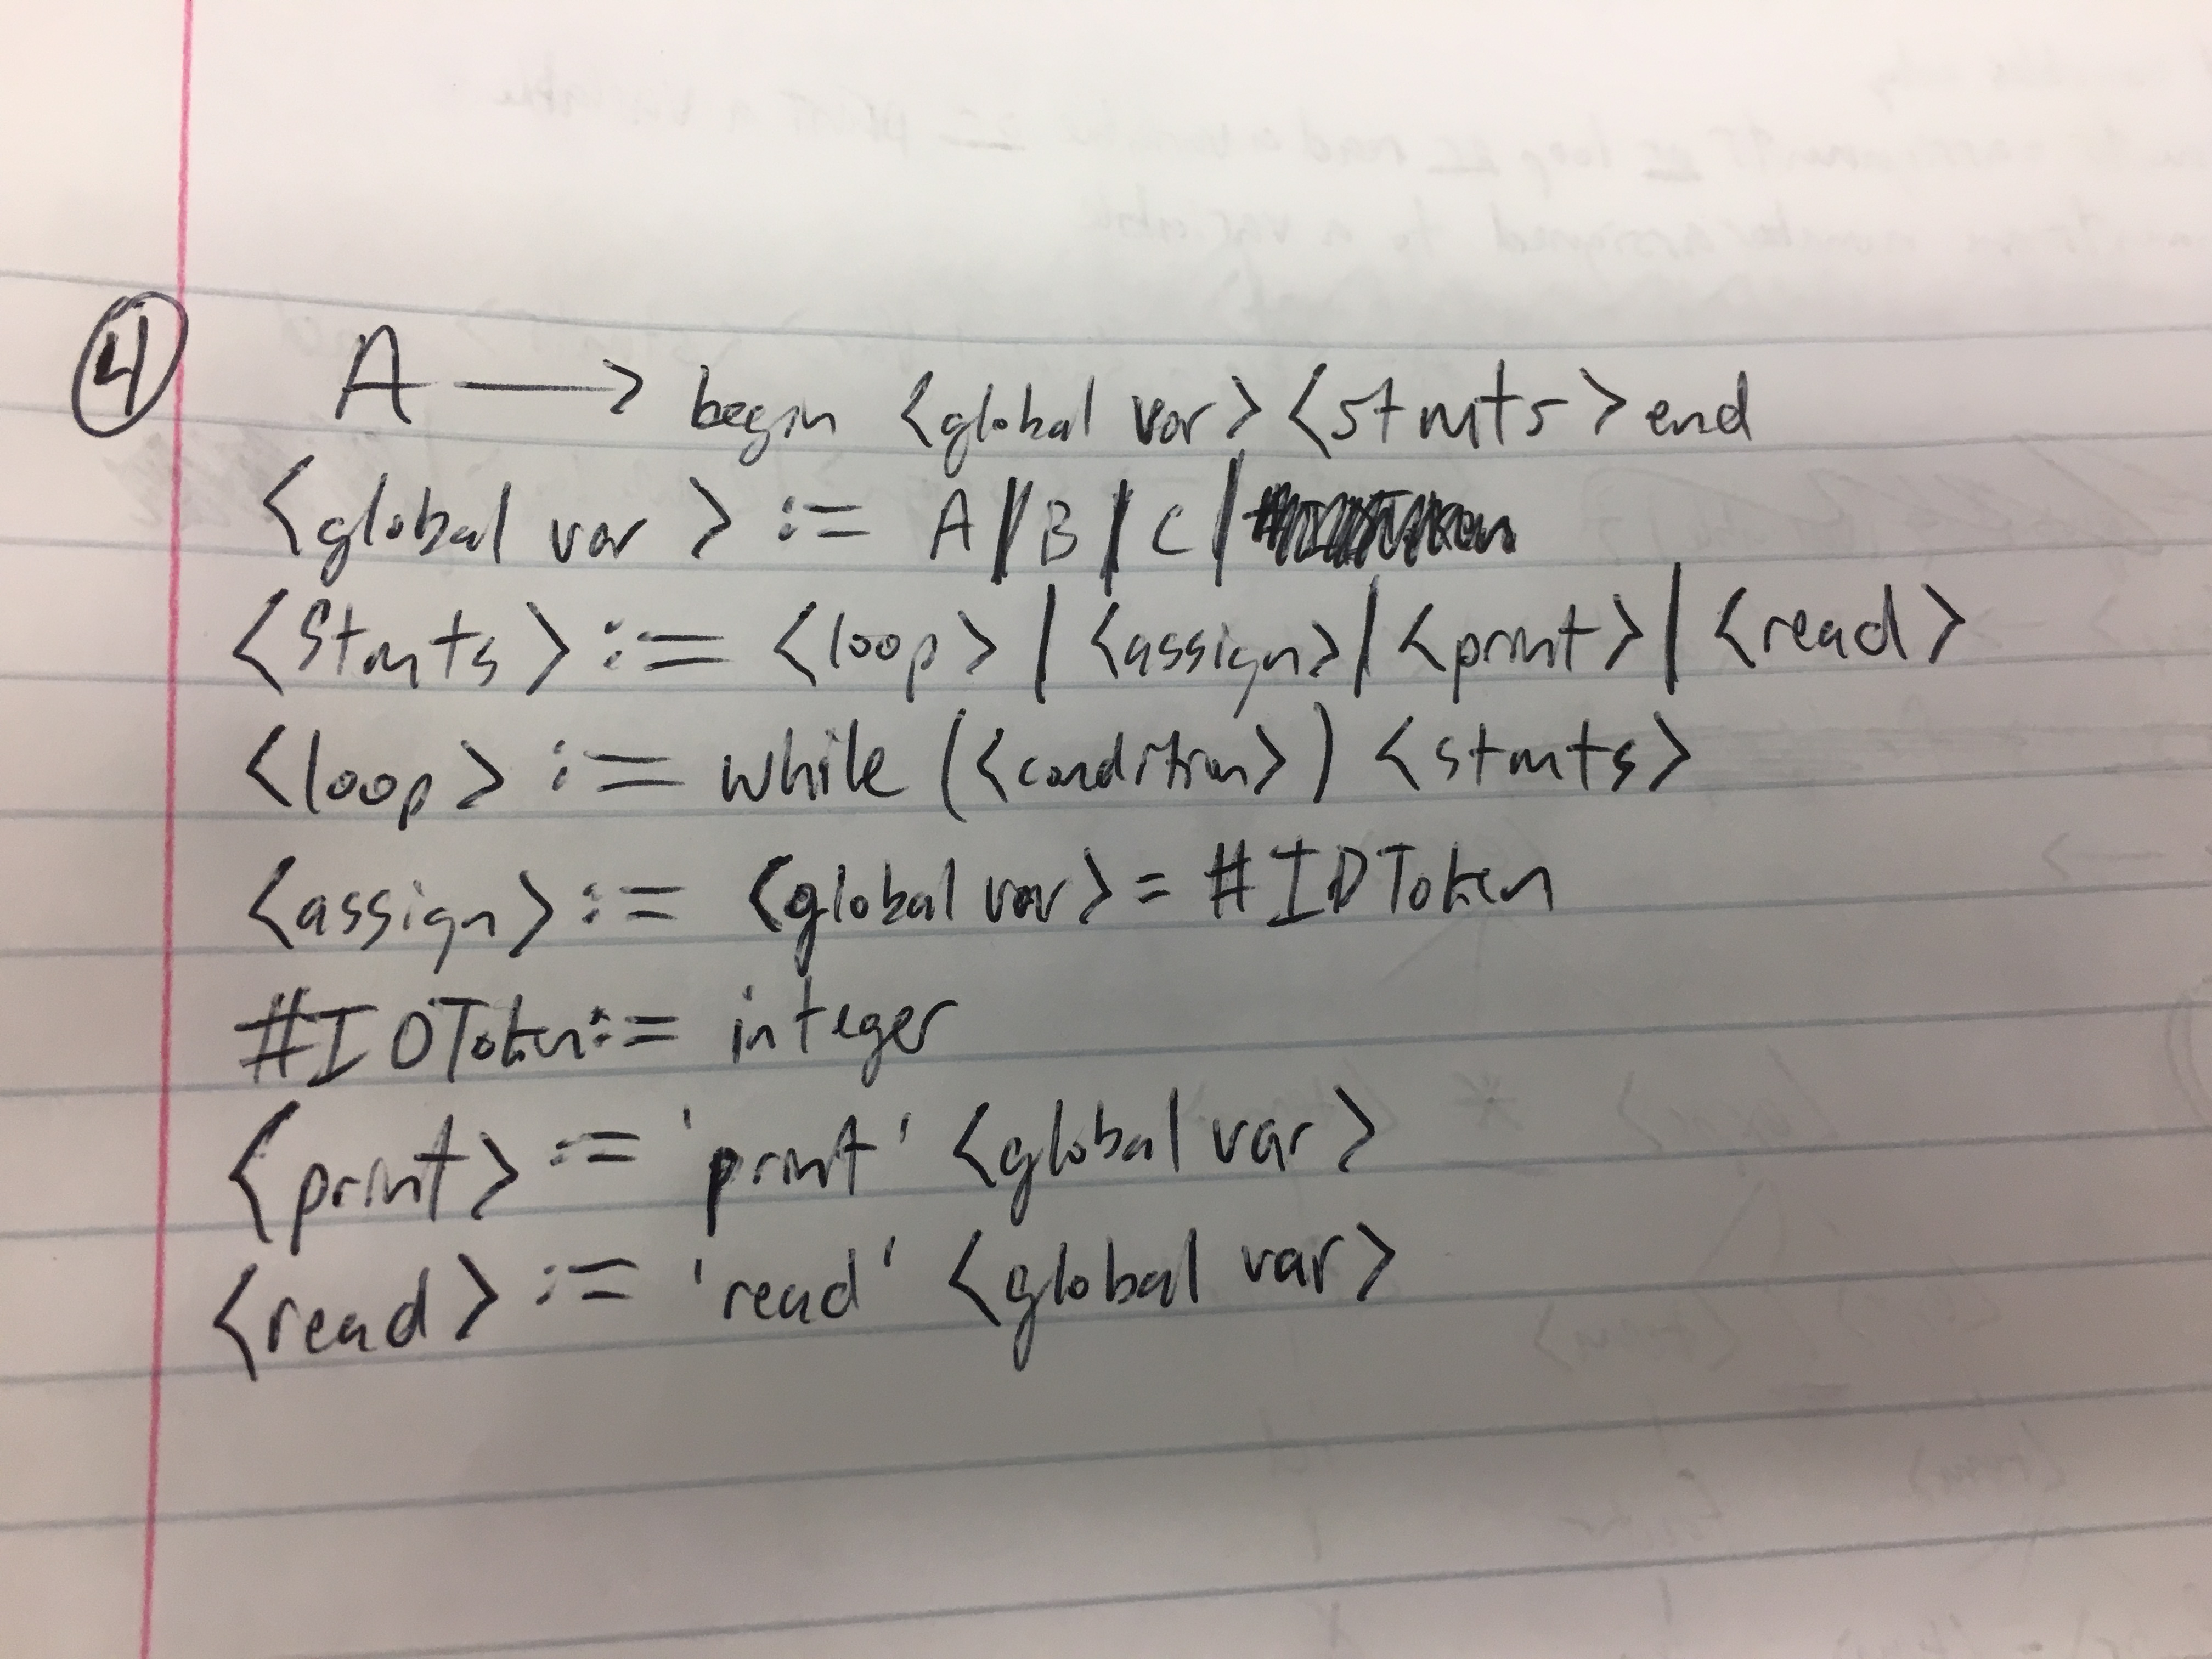 4 A → begin <global var> <stmts> end
<global var> := A | B | C |
<stmts> := <loop> | <assign> | <print> | <read>
<loop> := while (<condition>) <stmts>
<assign> := <global var> = #IDToken
#IDToken := integer
<print> := 'print' <global var>
<read> := 'read' <global var>